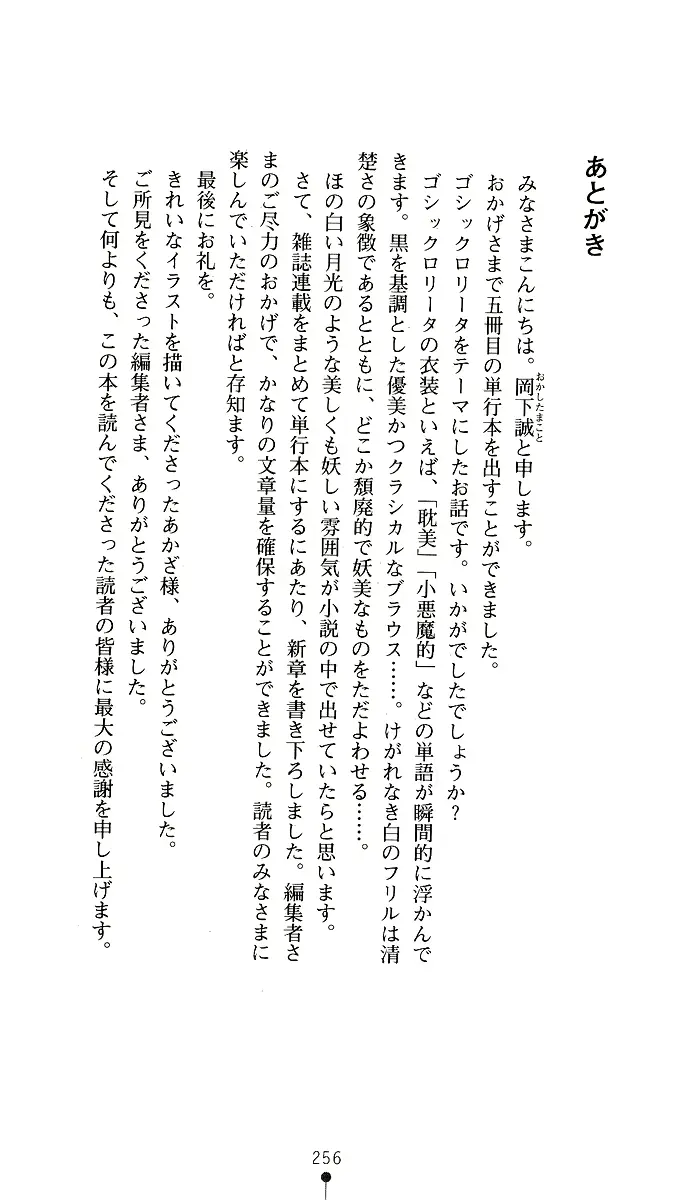 あとがき
みなさまこんにちは。岡下誠と申します。
おかしたまこと
おかげさまで五冊目の単行本を出すことができました。
ゴシックロリータをテーマにしたお話です。いかがでしたでしょうか？
ゴシックロリータの衣装といえば、「耽美」「小悪魔的」などの単語が瞬間的に浮かんで
きます。黒を基調とした優美かつクラシカルなブラウス……。けがれなき白のフリルは清
楚さの象徴であるとともに、どこか頽廃的で妖美なものをただよわせる……。
ほの白い月光のような美しくも妖しい雰囲気が小説の中で出せていたらと思います。
さて、雑誌連載をまとめて単行本にするにあたり、新章を書き下ろしました。編集者さ
まのご尽力のおかげで、かなりの文章量を確保することができました。読者のみなさまに
楽しんでいただければと存知ます。
最後にお礼を。
きれいなイラストを描いてくださったあかざ様、ありがとうございました。
ご所見をくださった編集者さま、ありがとうございました。
そして何よりも、この本を読んでくださった読者の皆様に最大の感謝を申し上げます。
256